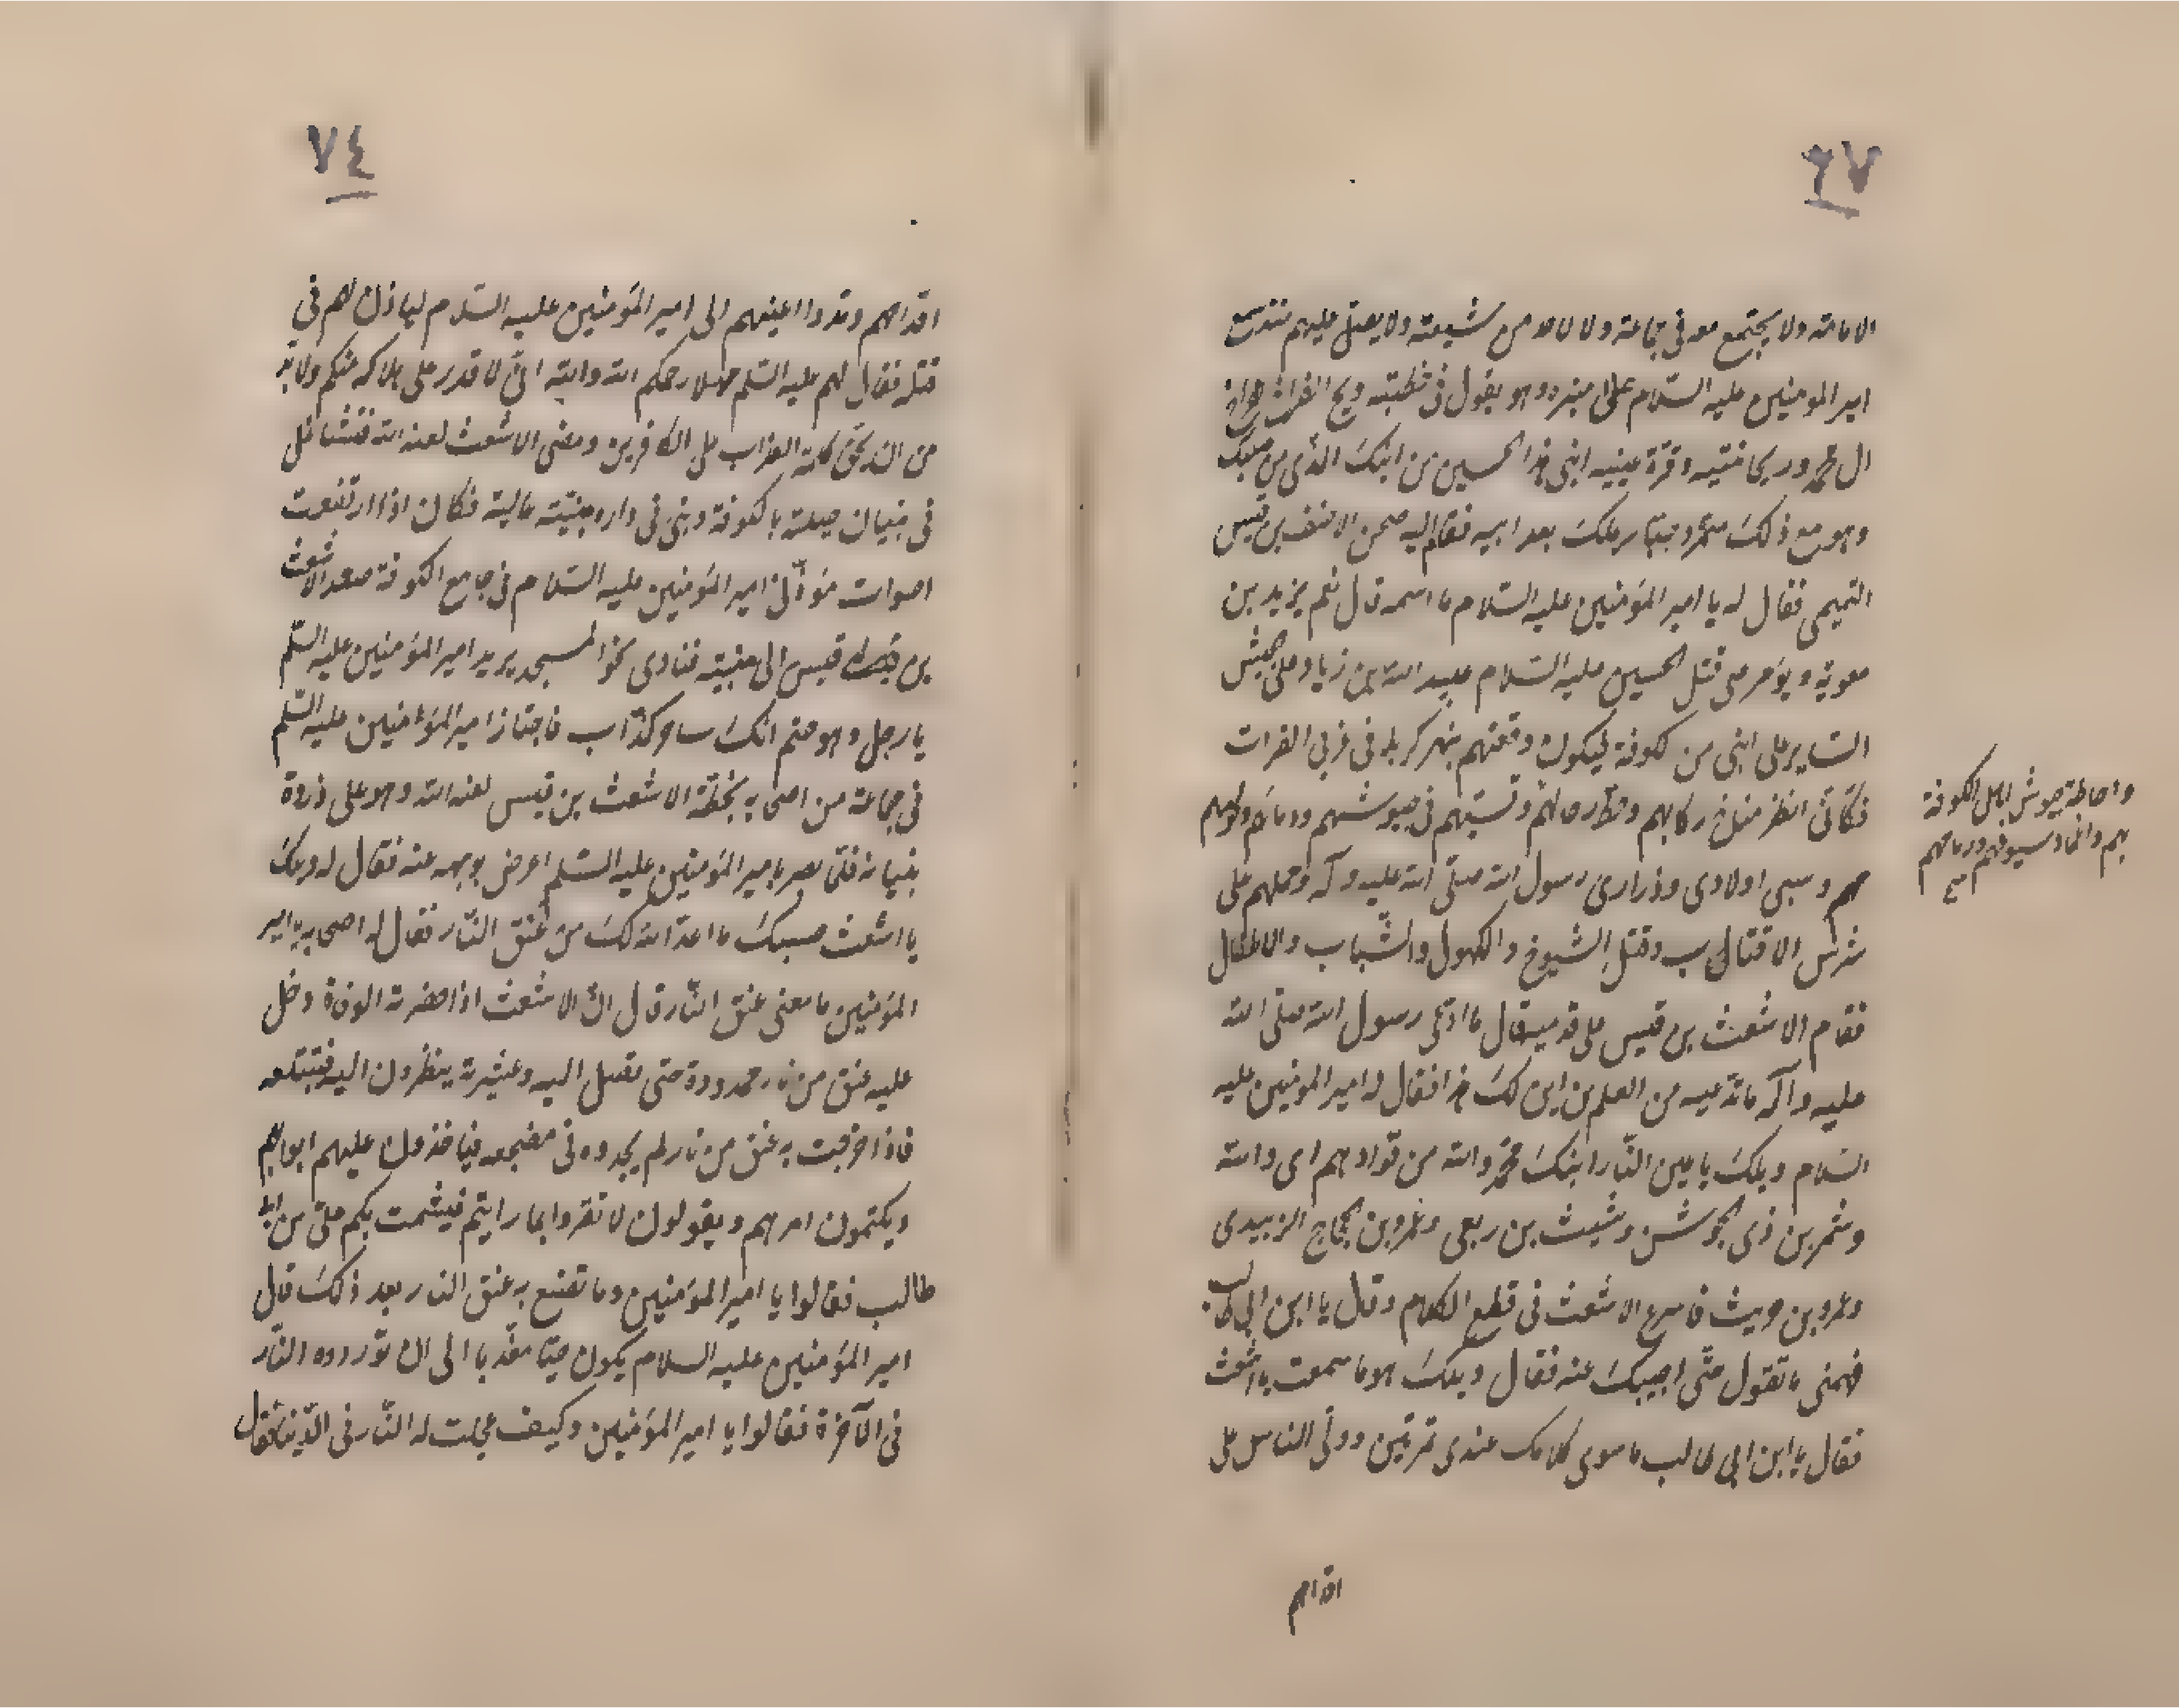 ٧٣
الامامة ولا يجتمع معه في جماعة ولا من شيعته ولا عليهم
امير المومنين عليه السلام على منبره وهو يقول في خطبته ويح الفرخ فرخ
ال محمد وريحانتيه وقرة عينيه ابني هذا الحسين من ابنك الذي من صلبك
وهو مع ذلك متمرد جبار يملك بعد ابيه فقام اليه صحن الاحنف بن قيس
التميمي فقال له يا امير المؤمنين عليه السلام ما اسمه قال نعم يزيد بن
معوية ويؤمر على قتل الحسين عليه السلام عبيد الله بن زياد على جيش
السائر على ابني من كوفة فيكون وقعتهم بنهر كربلا في غربي الفرات
فكاني انظر مناخ ركابهم ومحط رحالهم في جيوشهم
واحاطة جيوش اهل الكوفة
بهم واغماد سيوفهم ورماحهم
صح
وسبي اولادي وذراري رسول الله صلى الله عليه وآله وحملهم على
شرس الاقتاب وقتل الشيوخ والكهول والشباب والاطفال
فقام الاشعث بن قيس على قدميه فقال ما ادعى رسول الله صلى الله
عليه وآله ما تدعيه من العلم من اين لك هذا فقال له امير المومنين عليه
السلام ويلك يا عين النار ابنك محمد والله من قوادهم اي والله
وشمر بن ذي الجوشن وشبث بن ربعي وعمرو بن الحجاج الزبيدي
وعمرو بن حريث فاسرع الاشعث في قطع الكلام وقال يا ابن ابي طالب
فهمني ما تقول حتى اجيبك عنه فقال ويلك هو ما سمعت يا اشعث
فقال يا ابن ابي طالب ما سوى كلامك عندي تمرتين وولى الناس على
اقدامهم
٧٤
اقدامهم ومدوا اعينهم الى امير المؤمنين عليه السلام لياذن لهم في
قتله فقال لهم عليه السلم مهلا رحمكم الله والله اني لاقدر على هلاكه منكم ولا بد
من ان تحق كلمة العذاب على الكافرين ومضى الاشعث لعنه الله فتشاغل
في بنيان حيلته بالكوفة وبنى في داره مئذنة عالية فكان اذا ارتفعت
اصوات مؤذن امير المؤمنين عليه السلام في جامع الكوفة صعد الاشعث
بن قيس الى مئذنته فنادى نحو المسجد يريد امير المؤمنين عليه السلم
يا رجل وهو منم انك ساحر كذاب فاجتاز امير المؤمنين عليه السلم
في جماعة من اصحابه بخطة الاشعث بن قيس لعنه الله وهو على ذروة
بنيانه فلما بصر بامير المؤمنين عليه السلم اعرض بوجهه عنه فقال له ويلك
يا اشعث حسبك ما اعد الله لك من عنق النار فقال له اصحابه يا امير
المؤمنين ما معنى عنق النار قال ان الاشعث اذا حضرته الوفاة دخل
عليه عنق من نار ممدودة حتى تصل اليه وعشيرته ينظرون اليه فتبتلعه
فاذا خرجت به عنق من نار لم يجدوه في مضجعه فياخذون عليهم ابوابهم
ويكتمون امرهم ويقولون لا تقروا بما رايتم فيشمت بكم علي بن ابي
طالب فقالوا يا امير المؤمنين وما تصنع به عنق النار بعد ذلك قال
امير المؤمنين عليه السلام يكون حيا معذبا الى ان تورده النار
في الآخرة فقالوا يا امير المؤمنين وكيف عجلت له النار في الدنيا فقال